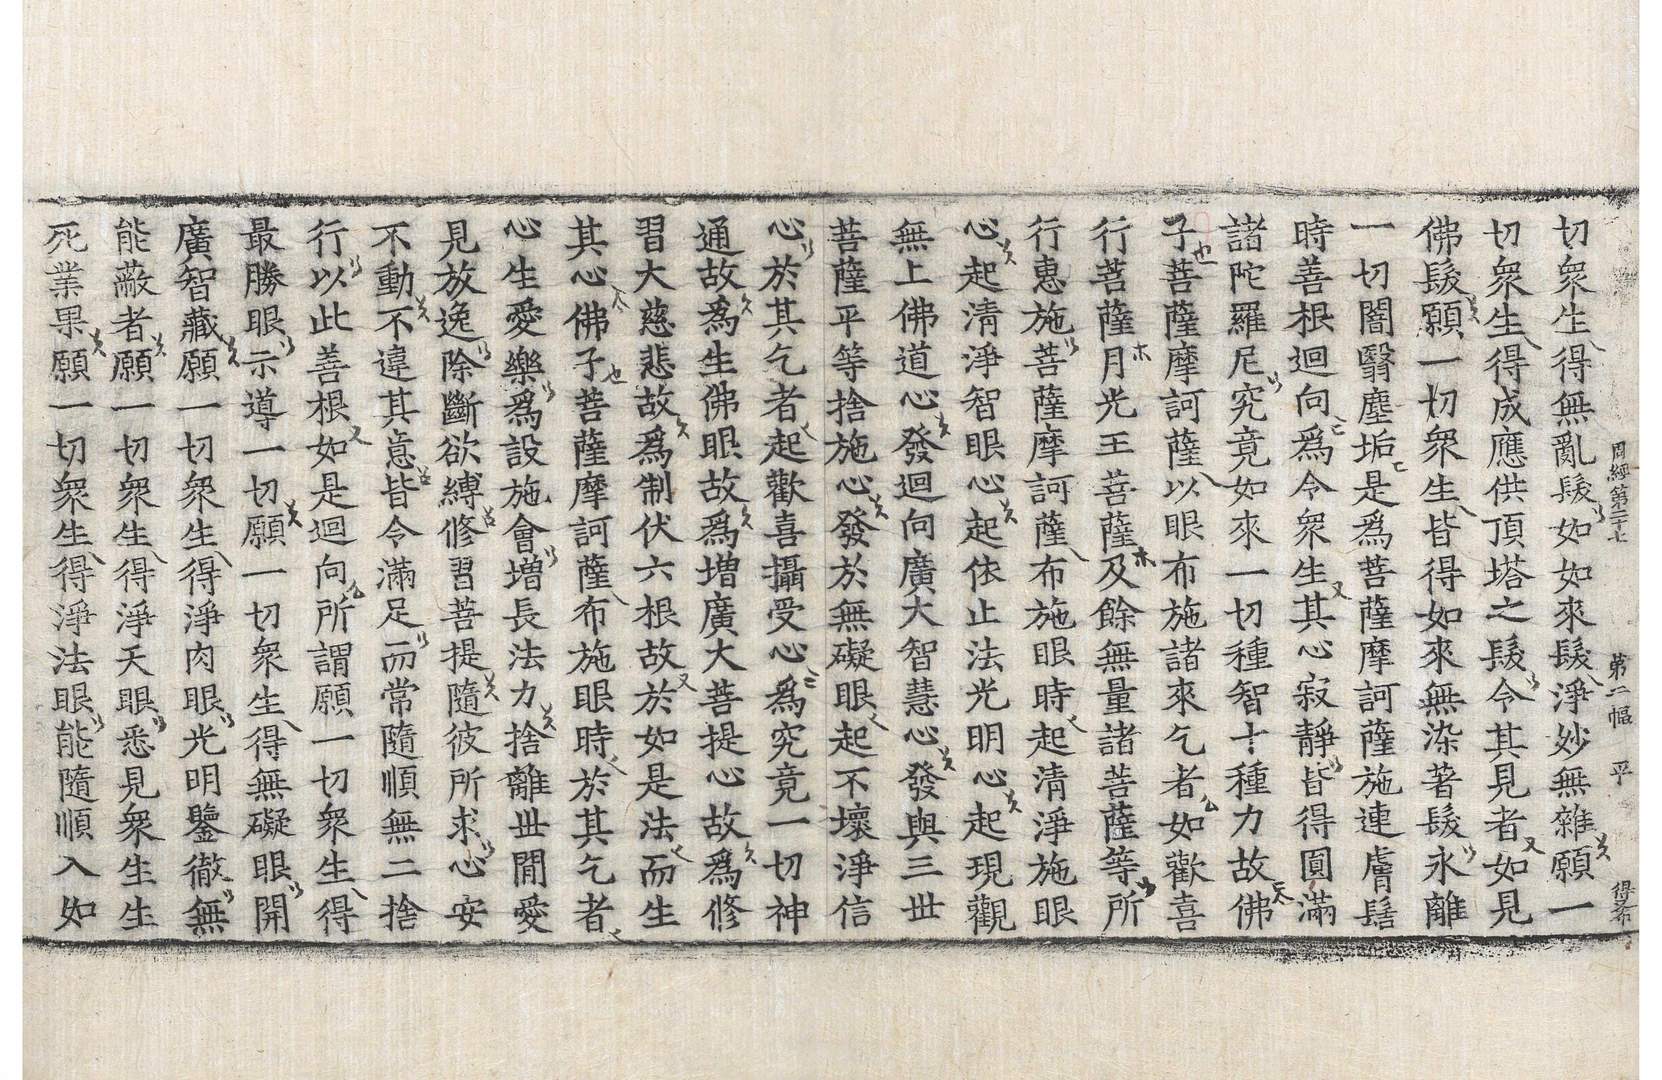 周經第二十七 第二幅 平 得希
切衆生得無亂髮如如來髮淨妙無雜願一
切衆生得成應供頂塔之髮令其見者如見
佛髮願一切衆生皆得如來無染著髮永離
一切闇翳塵垢是爲菩薩摩訶薩施連膚髻
時善根迴向爲令衆生其心寂靜皆得圓滿
諸陀羅尼究竟如來一切種智十種力故佛
子菩薩摩訶薩以眼布施諸來乞者如歡喜
行菩薩月光王菩薩及餘無量諸菩薩等所
行惠施菩薩摩訶薩布施眼時起清淨施眼
心起清淨智眼心起依止法光明心起現觀
無上佛道心發迴向廣大智慧心發與三世
菩薩平等捨施心發於無礙眼起不壞淨信
心於其乞者起歡喜攝受心爲究竟一切神
通故爲生佛眼故爲增廣大菩提心故爲修
習大慈悲故爲制伏六根故於如是法而生
其心佛子菩薩摩訶薩布施眼時於其乞者
心生愛樂爲設施會增長法力捨離世間愛
見放逸除斷欲縛修習菩提隨彼所求心安
不動不違其意皆令滿足而常隨順無二捨
行以此善根如是迴向所謂願一切衆生得
最勝眼示導一切願一切衆生得無礙眼開
廣智藏願一切衆生得淨肉眼光明鑒徹無
能蔽者願一切衆生得淨天眼悉見衆生生
死業果願一切衆生得淨法眼能隨順入如